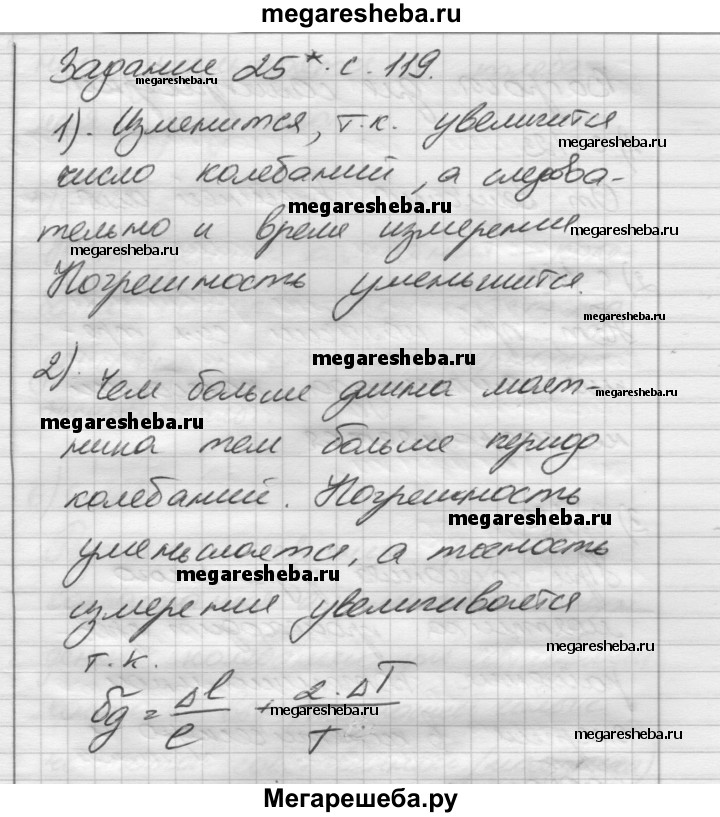 megaresheba.ru
Задание 25*. с. 119.
megaresheba.ru
1). Изменится, т.к. увеличится
megaresheba.ru
число колебаний, а следова-
megaresheba.ru
тельно и время измерения
megaresheba.ru
megaresheba.ru
Погрешность уменьшится.
megaresheba.ru
megaresheba.ru
2). Чем больше длина маят-
megaresheba.ru
megaresheba.ru
ника тем больше период
колебаний. Погрешность
megaresheba.ru
уменьшается, а точность
megaresheba.ru
измерения увеличивается
megaresheba.ru
т.к.
δg = Δl/l + 2·ΔT/T
megaresheba.ru
megaresheba.ru
Мегарешеба.ру